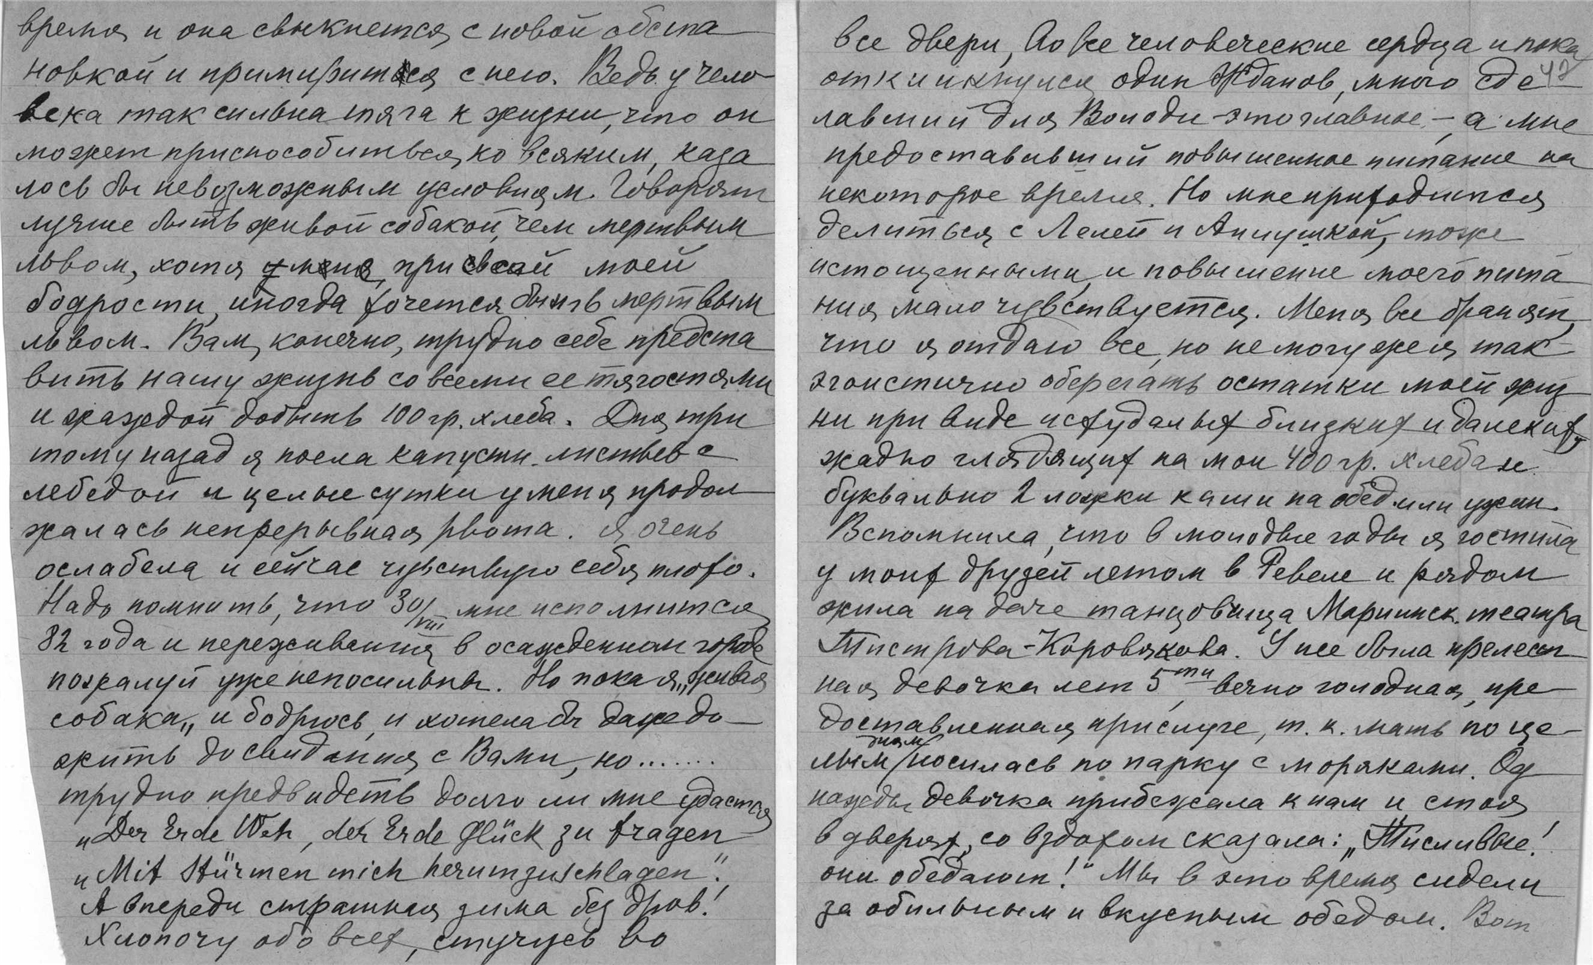 время и она свыкнется с новой обста
новкой и примирится с нею. Ведь у чело-
века так сильна тяга к жизни, что он
может приспособиться ко всяким, каза
лось бы невозможным условиям. Говорят
лучше быть живой собакой, чем мертвым
львом, хотя у меня, при всей моей
бодрости, иногда хочется быть мертвым
львом. Вам, конечно, трудно себе предста
вить нашу жизнь со всеми ее тягостями
и жаждой добыть 100 гр. хлеба. Дня три
тому назад я поела капустн. листьев с
лебедой и целые сутки у меня продол
жалась непрерывная рвота. Я очень
ослабела и сейчас чувствую себя плохо.
Надо помнить, что 30/VIII мне исполнится
82 года и переживания в осажденном городе
пожалуй уже непосильны. Но пока я „живая
собака„ и бодрюсь, и хотела бы даже до-
жить до свидания с Вами, но.......
трудно предвидеть долго ли мне удастся
„Der Erde Weh, der Erde Glück zu tragen
„Mit Stürmen mich herumzuschlagen".
А впереди страшная зима без дров!
Хлопочу обо всех, стучусь во
все двери, во все человеческие сердца и пока
42
откликнулся один Жданов, много сде-
лавший для Володи - это главное -, а мне
предоставивший повышенное питание на
некоторое время. Но мне приходится
делиться с Лелей и Аннушкой, тоже
истощенными, и повышение моего пита
ния мало чувствуется. Меня все бранят,
что я отдаю все, но не могу же я так
эгоистично оберегать остатки моей жиз
ни при виде исхудалых близких и далеких,
жадно глядящих на мои 400 гр. хлеба и
буквально 2 ложки каши на обед или ужин.
Вспомнила, что в молодые годы я гостила
у моих друзей летом в Ревеле и рядом
жила на даче танцовщица Мариинск. театра
Тистрова-Коровякова. У нее была прелест
ная девочка лет 5ти, вечно голодная, пре-
доставленная прислуге, т. к. мать по це-
лым дням носилась по парку с моряками. Од
нажды девочка прибежала к нам и стоя
в дверях, со вздохом сказала: „Тисливые!
они обедают!" Мы в это время сидели
за обильным и вкусным обедом. Вот